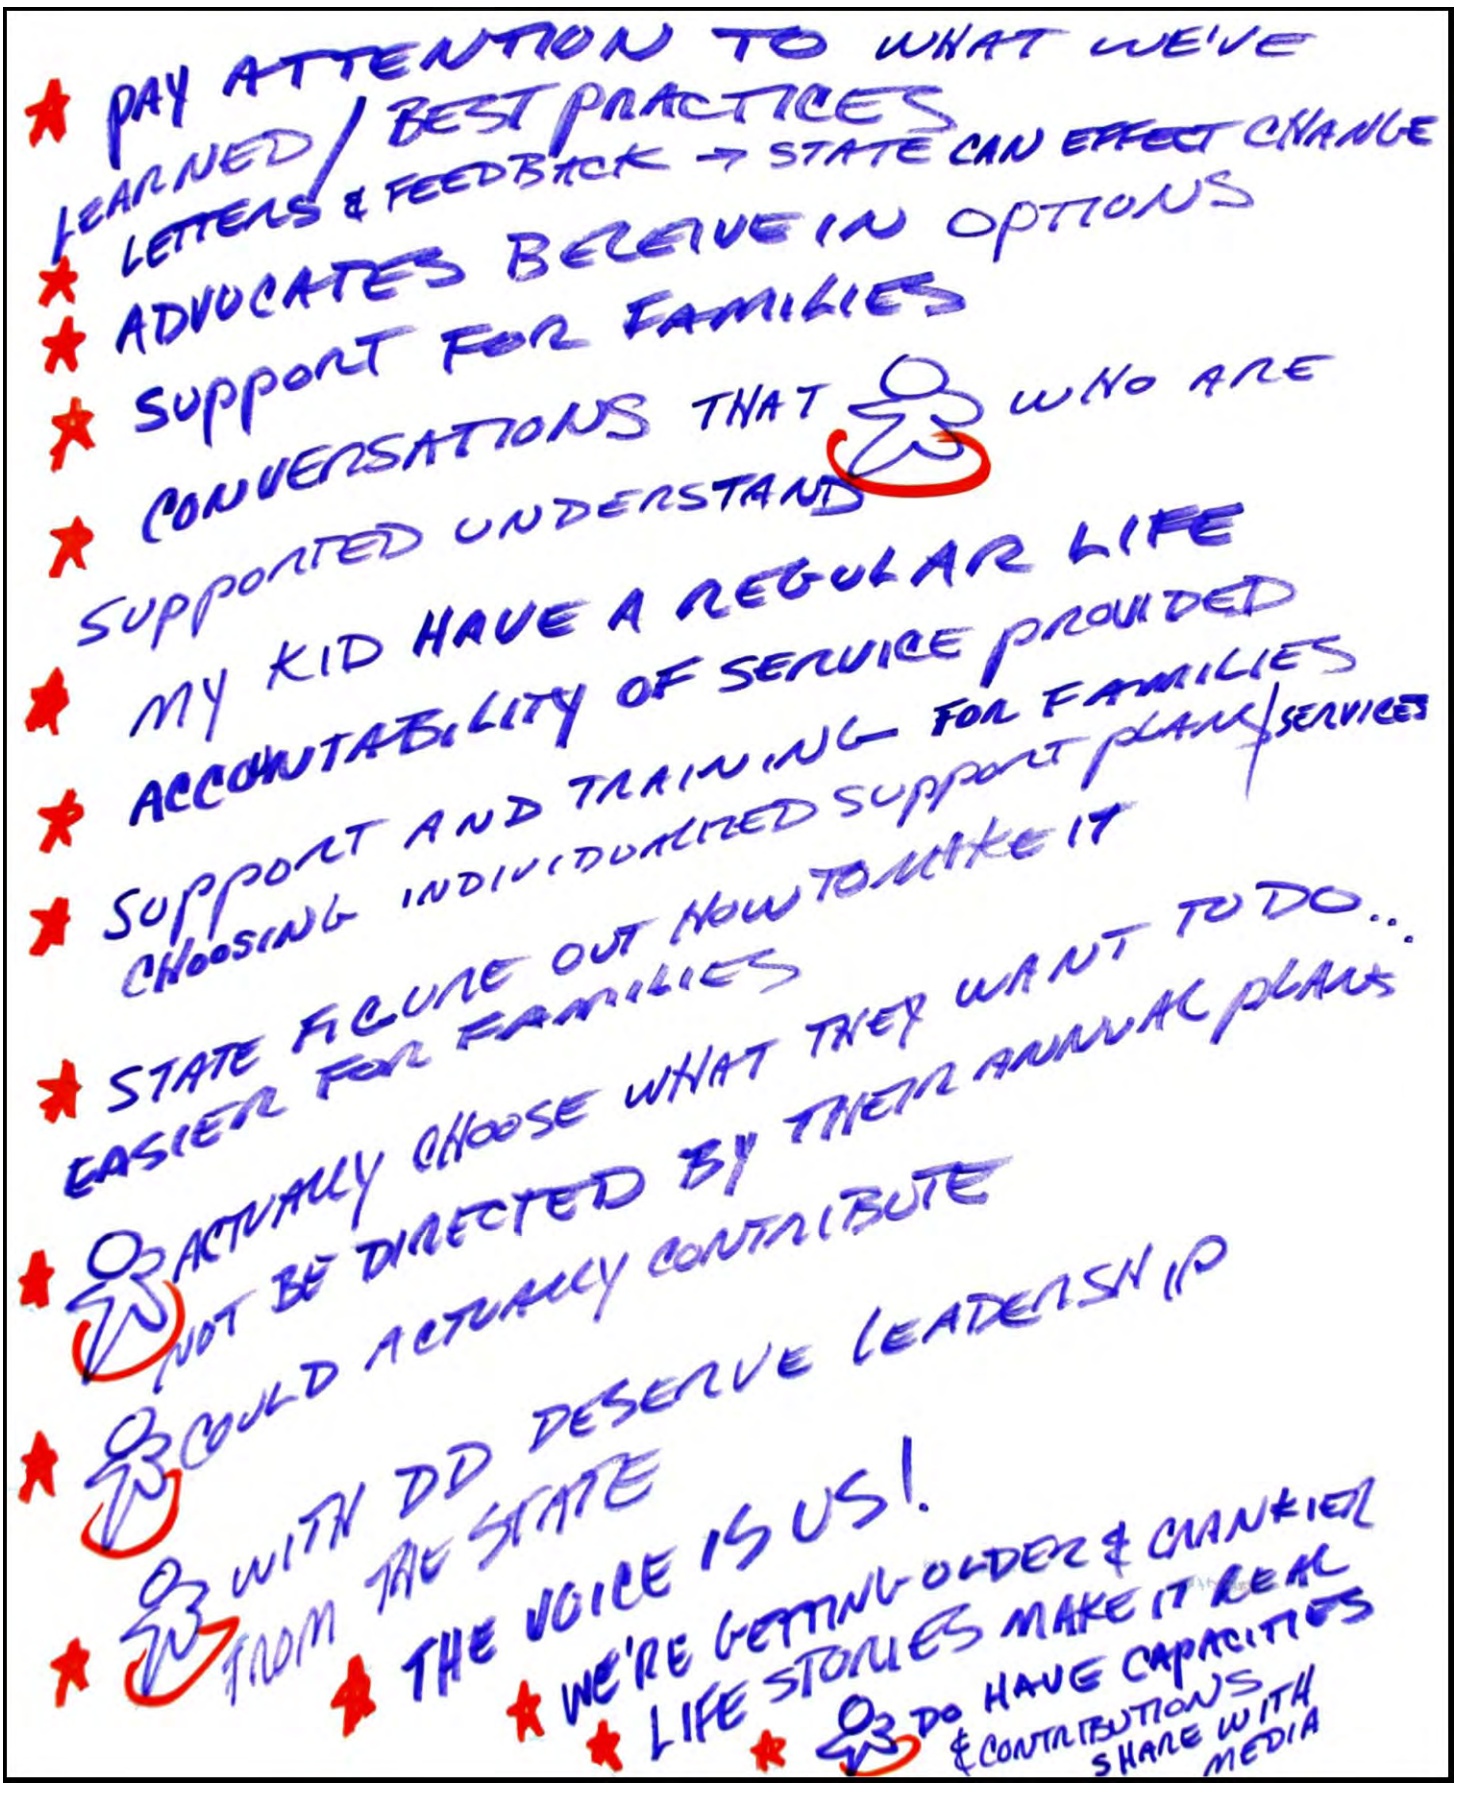 PAY ATTENTION TO WHAT WE'VE
LEARNED / BEST PRACTICES
LETTERS & FEEDBACK → STATE CAN EFFECT CHANGE
ADVOCATES BELEIVE IN OPTIONS
SUPPORT FOR FAMILIES
CONVERSATIONS THAT WHO ARE
SUPPORTED UNDERSTAND
MY KID HAVE A REGULAR LIFE
ACCOUNTABILITY OF SERVICE PROVIDED
SUPPORT AND TRAINING FOR FAMILIES
CHOOSING INDIVIDUALIZED SUPPORT PLANS/SERVICES
STATE FIGURE OUT HOW TO MAKE IT
EASIER FOR FAMILIES
ACTUALLY CHOOSE WHAT THEY WANT TO DO...
NOT BE DIRECTED BY THEIR ANNUAL PLANS
COULD ACTUALLY CONTRIBUTE
WITH DD DESERVE LEADERSHIP
FROM THE STATE
THE VOICE IS US!
WE'RE GETTING OLDER & CRANKIER
LIFE STORIES MAKE IT REAL
DO HAVE CAPACITIES
& CONTRIBUTIONS
SHARE WITH
MEDIA